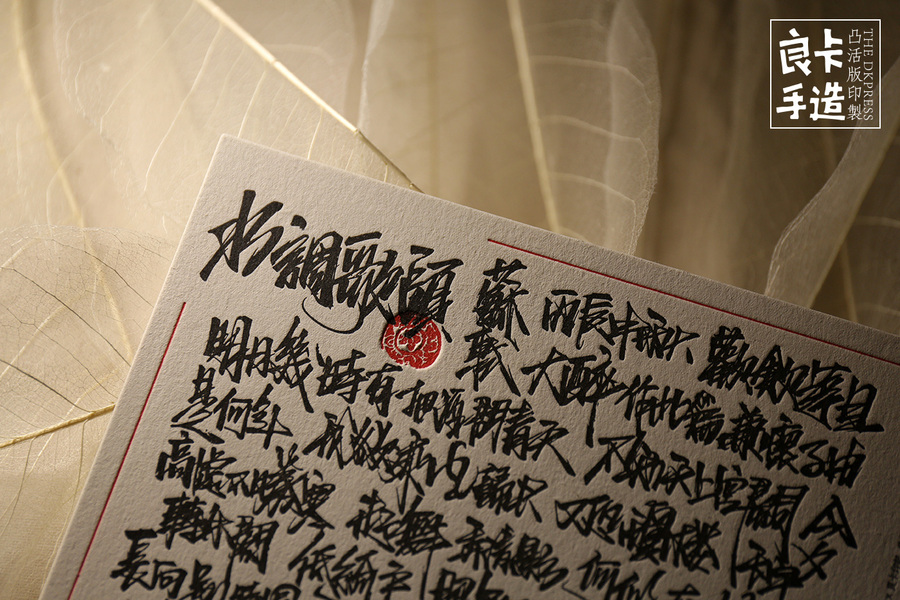 良卡
手造
凸活版印製
THE DKPRESS
水調歌頭 蘇軾 丙辰中秋 歡飲達旦
大醉 作此篇 兼懷子由
明月幾時有 把酒問青天 不知天上宮闕 今夕
是何年 我欲乘風歸去 又恐瓊樓玉宇
高處不勝寒 起舞弄清影 何似在
轉朱閣 低綺戶
長向別時圓